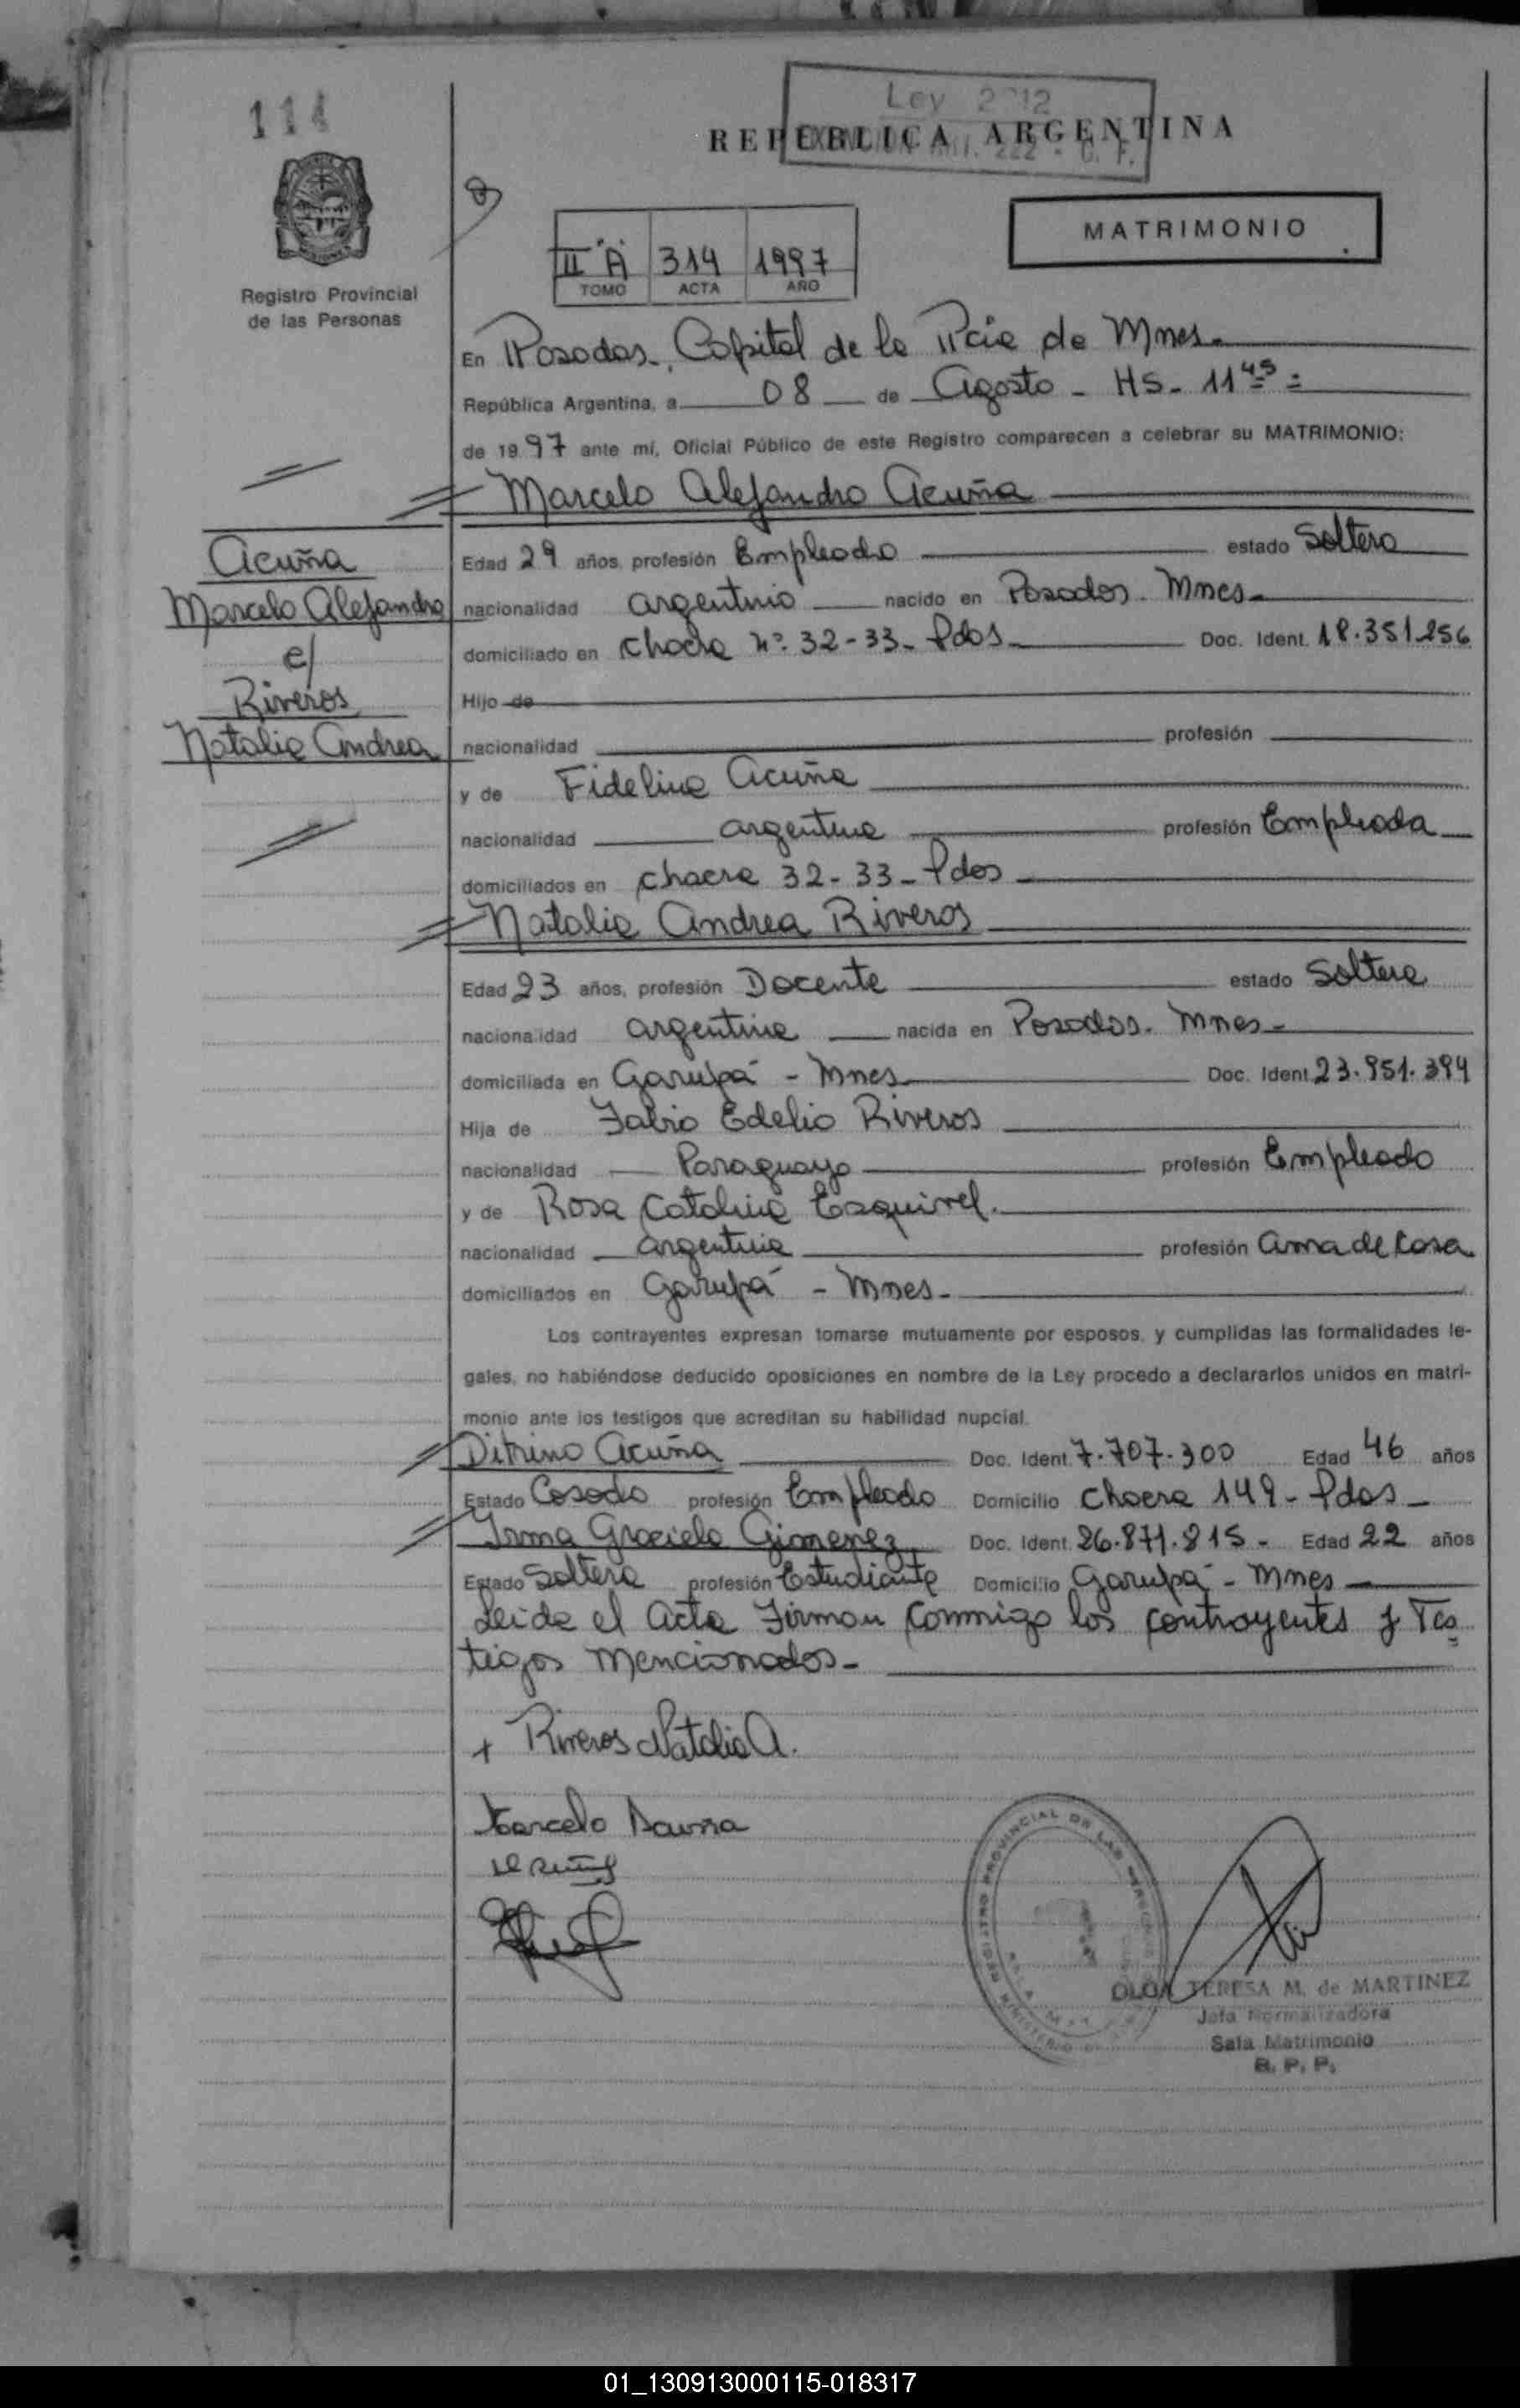 114
Ley 2712
REPUBLICA ARGENTINA
222 - C. F.
MATRIMONIO
II "A" 314 1997
TOMO ACTA AÑO
Registro Provincial
de las Personas
En Posadas, Capital de la Pcia de Mnes.
República Argentina, a 08 de Agosto - HS - 11 45 =
de 1997 ante mí, Oficial Público de este Registro comparecen a celebrar su MATRIMONIO:
Marcelo Alejandro Acuña
Acuña
Marcelo Alejandro
c/
Riveros
Natalia Andrea
Edad 29 años, profesión Empleado estado Soltero
nacionalidad argentino nacido en Posadas. Mnes
domiciliado en Chacra Nº 32-33- Pdas Doc. Ident. 18.351.256
Hijo de
nacionalidad profesión
y de Fidelina Acuña
nacionalidad argentina profesión Empleada
domiciliados en chacra 32-33- Pdas
Natalia Andrea Riveros
Edad 23 años, profesión Docente estado Soltera
nacionalidad argentina nacida en Posadas. Mnes
domiciliada en Garupá - Mnes Doc. Ident. 23.951.394
Hija de Fabio Edelio Riveros
nacionalidad Paraguayo profesión Empleado
y de Rosa Catalina Esquivel.
nacionalidad argentina profesión Ama de Casa
domiciliados en Garupá - Mnes.
Los contrayentes expresan tomarse mutuamente por esposos, y cumplidas las formalidades le-
gales, no habiéndose deducido oposiciones en nombre de la Ley procedo a declararlos unidos en matri-
monio ante los testigos que acreditan su habilidad nupcial.
Ditrino Acuña Doc. Ident. 7.707.300 Edad 46 años
Estado Casado profesión Empleado Domicilio Chacra 149- Pdas
Irma Graciela Gimenez Doc. Ident. 26.871.815 - Edad 22 años
Estado Soltera profesión Estudiante Domicilio Garupá - Mnes
Leida el Acta Firman conmigo los contrayentes y Tes
tigos Mencionados-
+ Riveros Natalia A.
Marcelo Acuña
REGISTRO PROVINCIAL DE LAS PERSONAS
OLGA TERESA M. de MARTINEZ
Jefa Normalizadora
Sala Matrimonio
R. P. P.
01_130913000115-018317